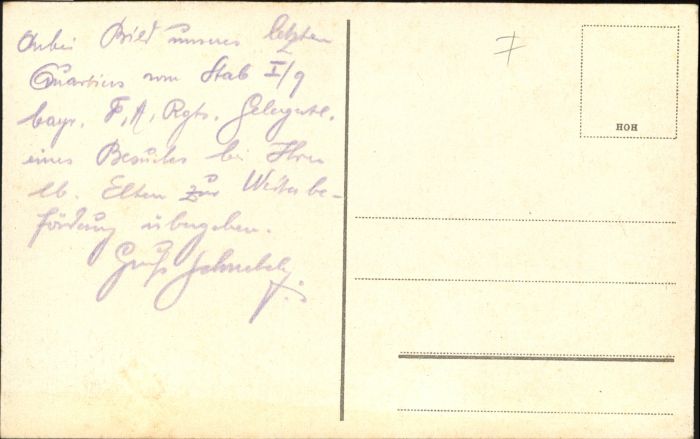 Anbei Bild unseres letzten
Quartiers vom Stab I/9
bayr. F. A. Rgts. Gelegentl.
eines Besuches bei Ihren
lb. Eltern zur Weiterbe-
förderung übergeben.
Gruß
7
HOH